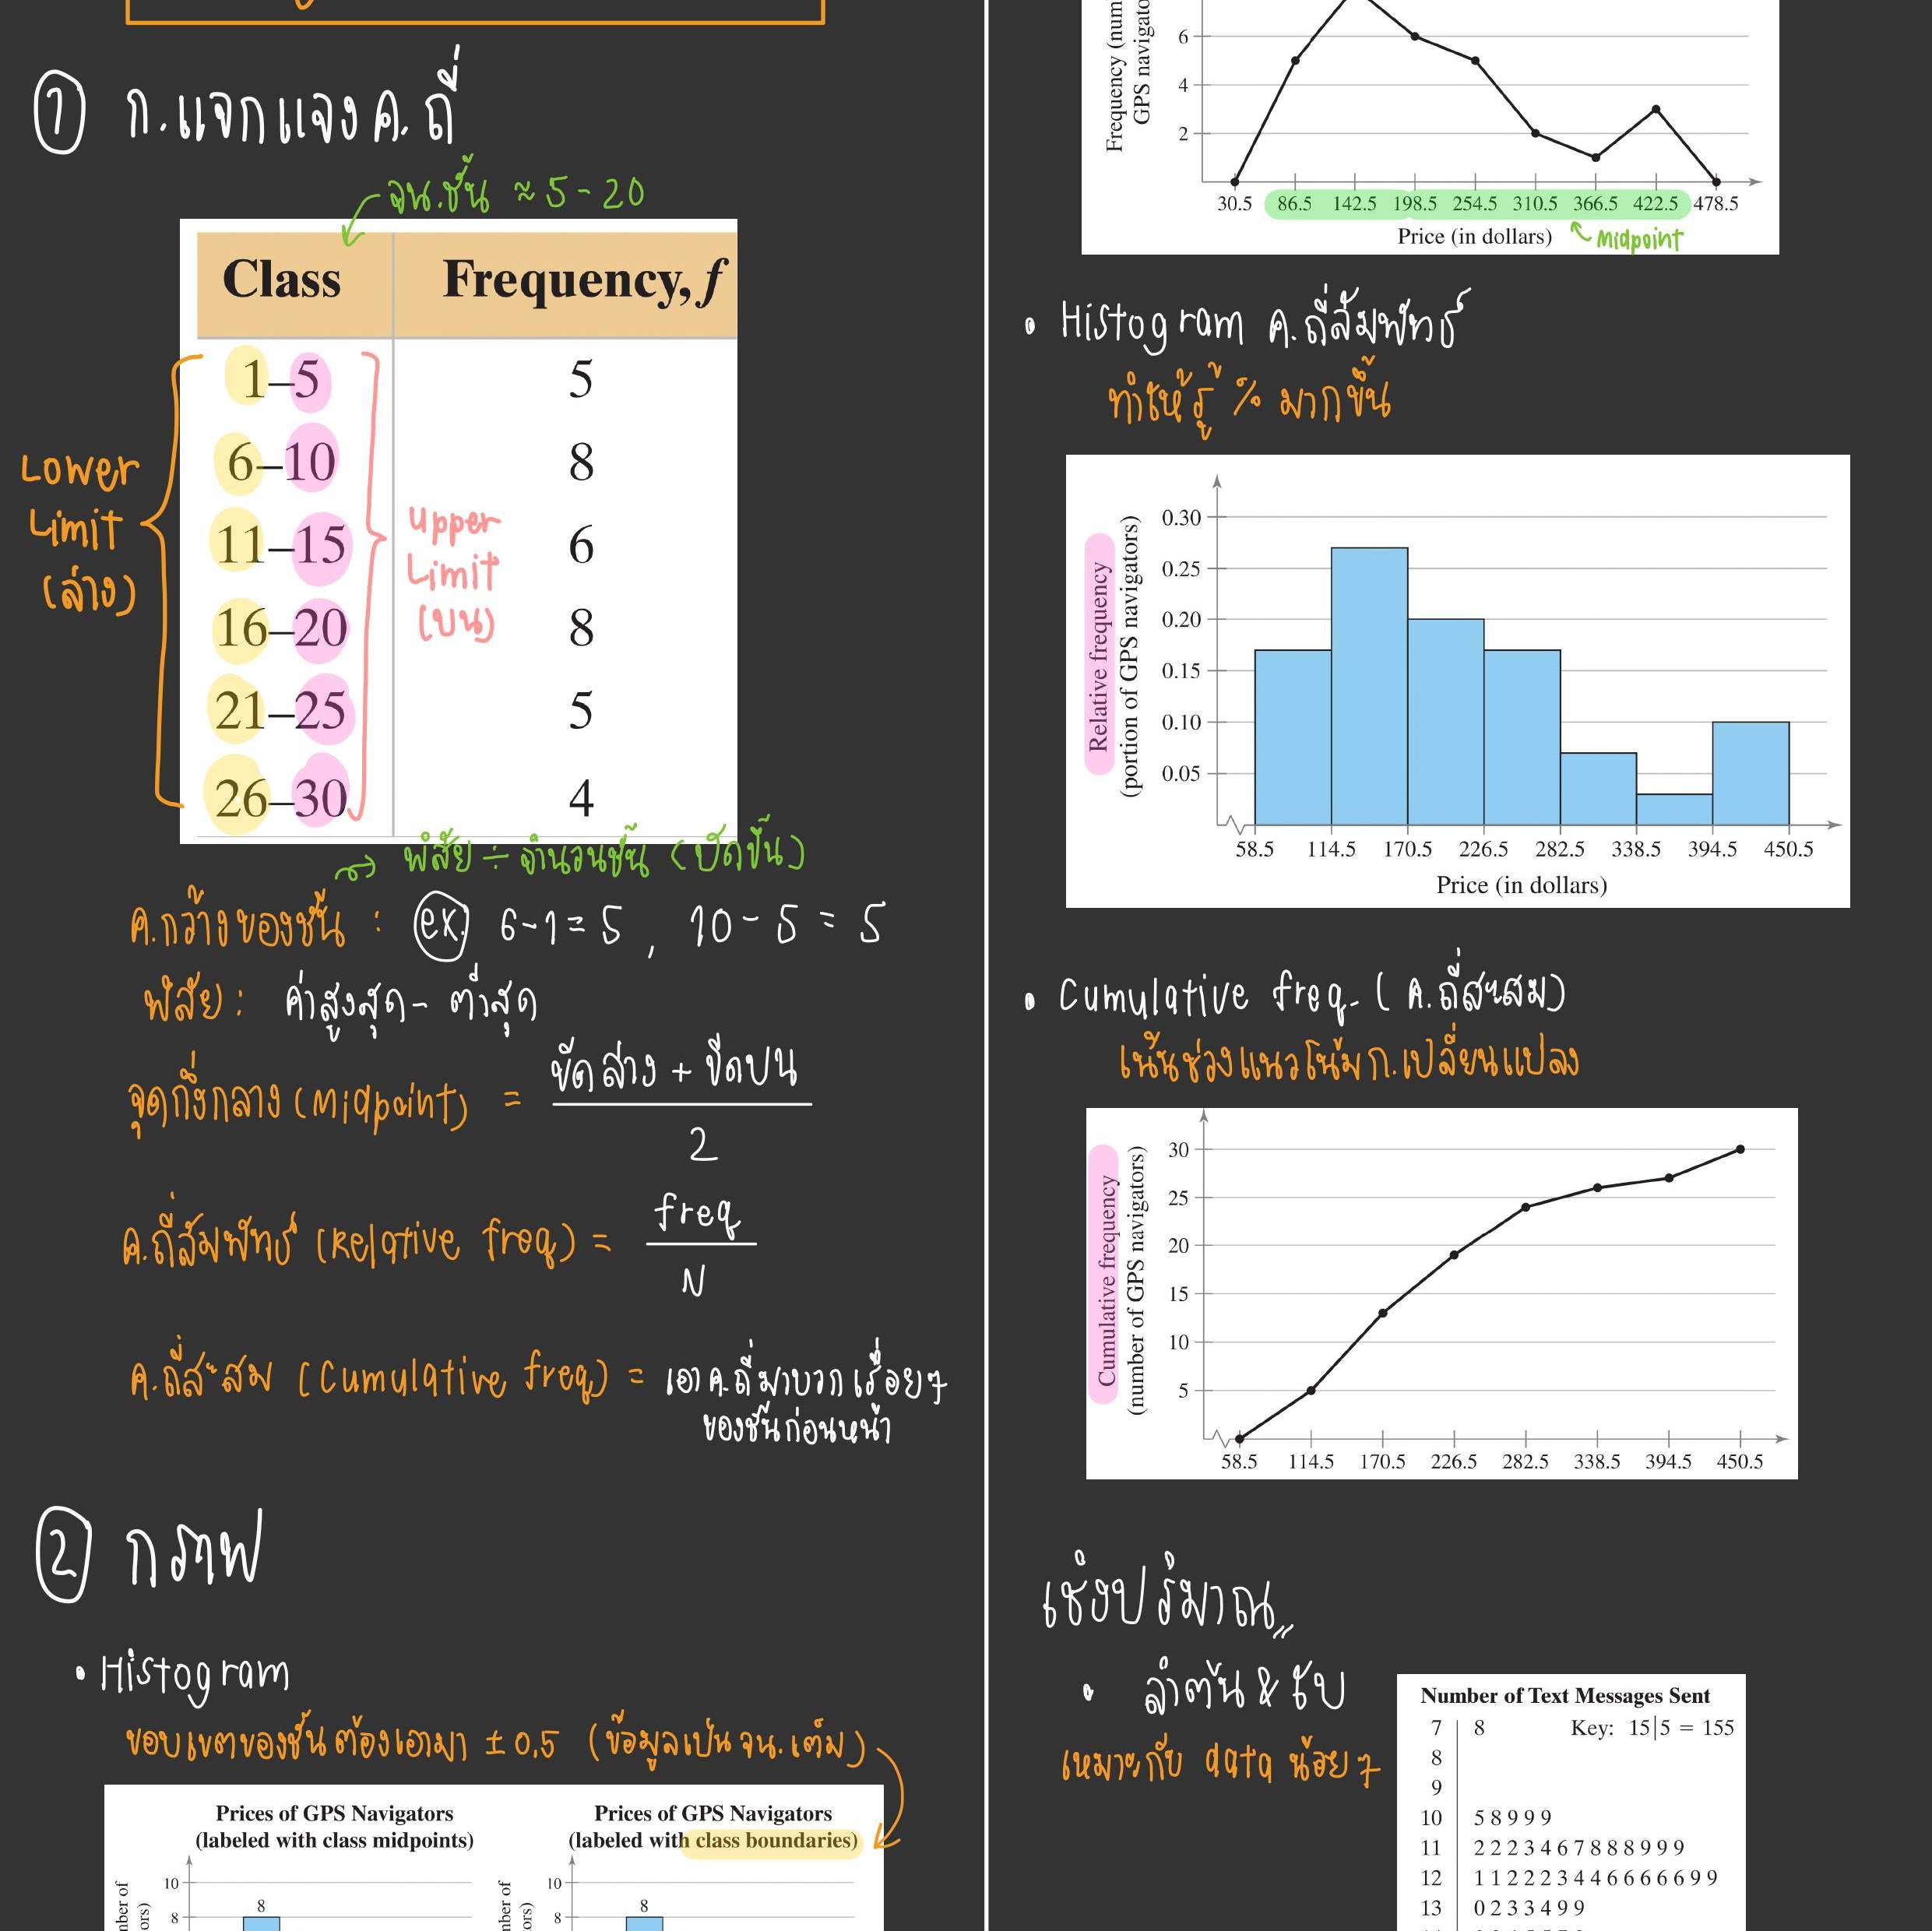 ① ก.แจกแจงค.ถี่
จน.ชั้น ≈ 5-20
Class Frequency, f
1–5 5
6–10 8
11–15 6
16–20 8
21–25 5
26–30 4
Lower
Limit
(ล่าง)
upper
Limit
(บน)
พิสัย ÷ จำนวนชั้น (ปัดขึ้น)
ค.กว้างของชั้น : ex. 6-1 = 5 , 10-5 = 5
พิสัย : ค่าสูงสุด - ต่ำสุด
จุดกึ่งกลาง (Midpoint) = ขีดล่าง + ขีดบน
2
ค.ถี่สัมพัทธ์ (Relative freq) = freq
N
ค.ถี่สะสม (Cumulative freq) = เอาค.ถี่มาบวกเรื่อยๆ
ของชั้นก่อนหน้า
② กราฟ
• Histogram
ขอบเขตของชั้นต้องเอามา ± 0.5 (ข้อมูลเป็น จน.เต็ม)
Prices of GPS Navigators
(labeled with class midpoints)
10
8
8
Prices of GPS Navigators
(labeled with class boundaries)
10
8
8
6
4
2
30.5 86.5 142.5 198.5 254.5 310.5 366.5 422.5 478.5
Price (in dollars)
Midpoint
• Histogram ค.ถี่สัมพัทธ์
ทำให้รู้ % มากขึ้น
Relative frequency
(portion of GPS navigators)
0.30
0.25
0.20
0.15
0.10
0.05
58.5 114.5 170.5 226.5 282.5 338.5 394.5 450.5
Price (in dollars)
• Cumulative freq. (ค.ถี่สะสม)
เน้นช่วงแนวโน้มก.เปลี่ยนแปลง
Cumulative frequency
(number of GPS navigators)
30
25
20
15
10
5
58.5 114.5 170.5 226.5 282.5 338.5 394.5 450.5
เชิงปริมาณ
• ลำต้น & ใบ
เหมาะกับ data น้อยๆ
Number of Text Messages Sent
7 | 8 Key: 15|5 = 155
8 |
9 |
10 | 5 8 9 9 9
11 | 2 2 2 3 4 6 7 8 8 8 9 9 9
12 | 1 1 2 2 2 3 4 4 6 6 6 6 6 9 9
13 | 0 2 3 3 4 9 9